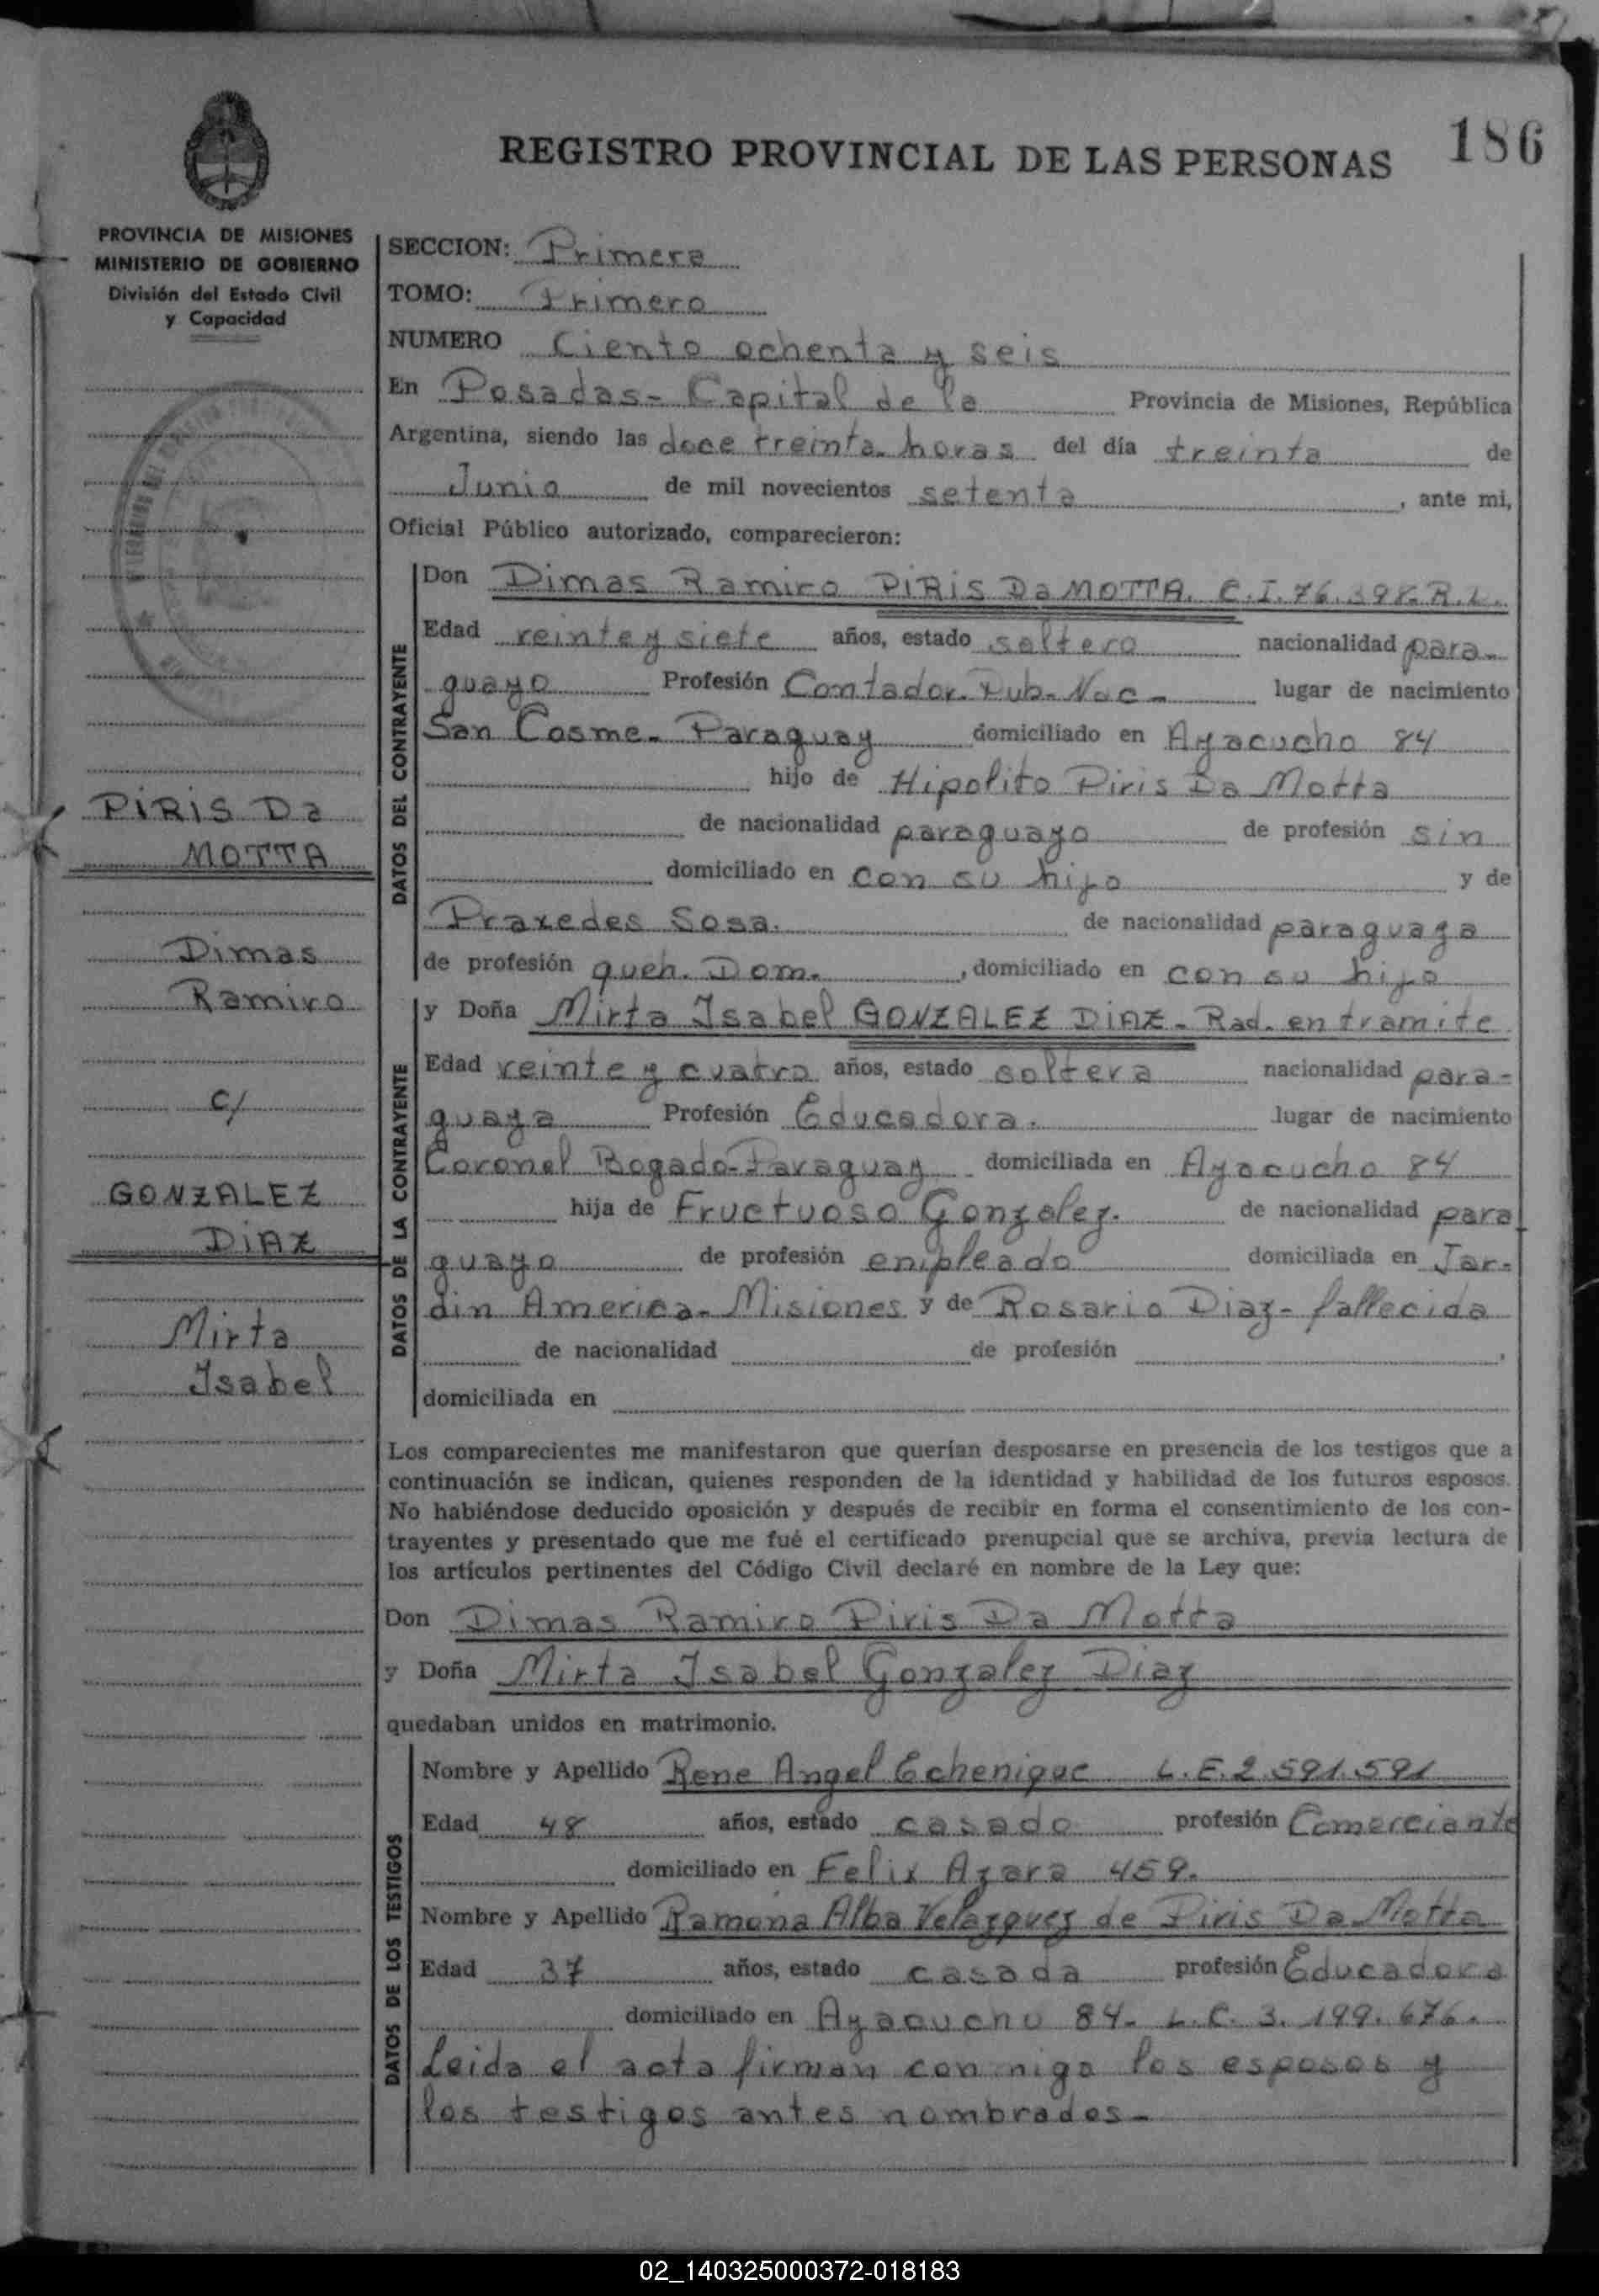 186
REGISTRO PROVINCIAL DE LAS PERSONAS
PROVINCIA DE MISIONES
MINISTERIO DE GOBIERNO
División del Estado Civil
y Capacidad
PIRIS Da
MOTTA
Dimas
Ramiro
c/
GONZALEZ
DIAZ
Mirta
Isabel
SECCION: Primera
TOMO: Primero
NUMERO Ciento ochenta y seis
En Posadas- Capital de la Provincia de Misiones, República
Argentina, siendo las doce treinta horas del día treinta de
Junio de mil novecientos setenta, ante mi,
Oficial Público autorizado, comparecieron:
DATOS DEL CONTRAYENTE
Don Dimas Ramiro PIRIS Da MOTTA. C.I. 76.398. R.L.
Edad veinte y siete años, estado soltero nacionalidad para-
guayo Profesión Contador. Pub. Nac- lugar de nacimiento
San Cosme- Paraguay domiciliado en Ayacucho 84
hijo de Hipolito Piris Da Motta
de nacionalidad paraguayo de profesión sin
domiciliado en con su hijo y de
Praxedes Sosa. de nacionalidad paraguaya
de profesión queh. Dom., domiciliado en con su hijo
DATOS DE LA CONTRAYENTE
y Doña Mirta Isabel GONZALEZ DIAZ- Rad. en tramite
Edad veinte y cuatro años, estado soltera nacionalidad para-
guaya Profesión Educadora. lugar de nacimiento
Coronel Bogado-Paraguay domiciliada en Ayacucho 84
hija de Fructuoso Gonzalez. de nacionalidad para
guayo de profesión empleado domiciliada en Jar-
din America- Misiones y de Rosario Diaz- fallecida
de nacionalidad de profesión ,
domiciliada en
Los comparecientes me manifestaron que querían desposarse en presencia de los testigos que a
continuación se indican, quienes responden de la identidad y habilidad de los futuros esposos.
No habiéndose deducido oposición y después de recibir en forma el consentimiento de los con-
trayentes y presentado que me fué el certificado prenupcial que se archiva, previa lectura de
los artículos pertinentes del Código Civil declaré en nombre de la Ley que:
Don Dimas Ramiro Piris Da Motta
y Doña Mirta Isabel Gonzalez Diaz
quedaban unidos en matrimonio.
DATOS DE LOS TESTIGOS
Nombre y Apellido Rene Angel Echenique L.E. 2.591.591
Edad 48 años, estado casado profesión Comerciante
domiciliado en Felix Azara 459.
Nombre y Apellido Ramona Alba Velazquez de Piris Da Motta
Edad 37 años, estado casada profesión Educadora
domiciliado en Ayacucho 84- L.C. 3.199.676.
Leida el acta firman conmigo los esposos y
los testigos antes nombrados-
02_140325000372-018183